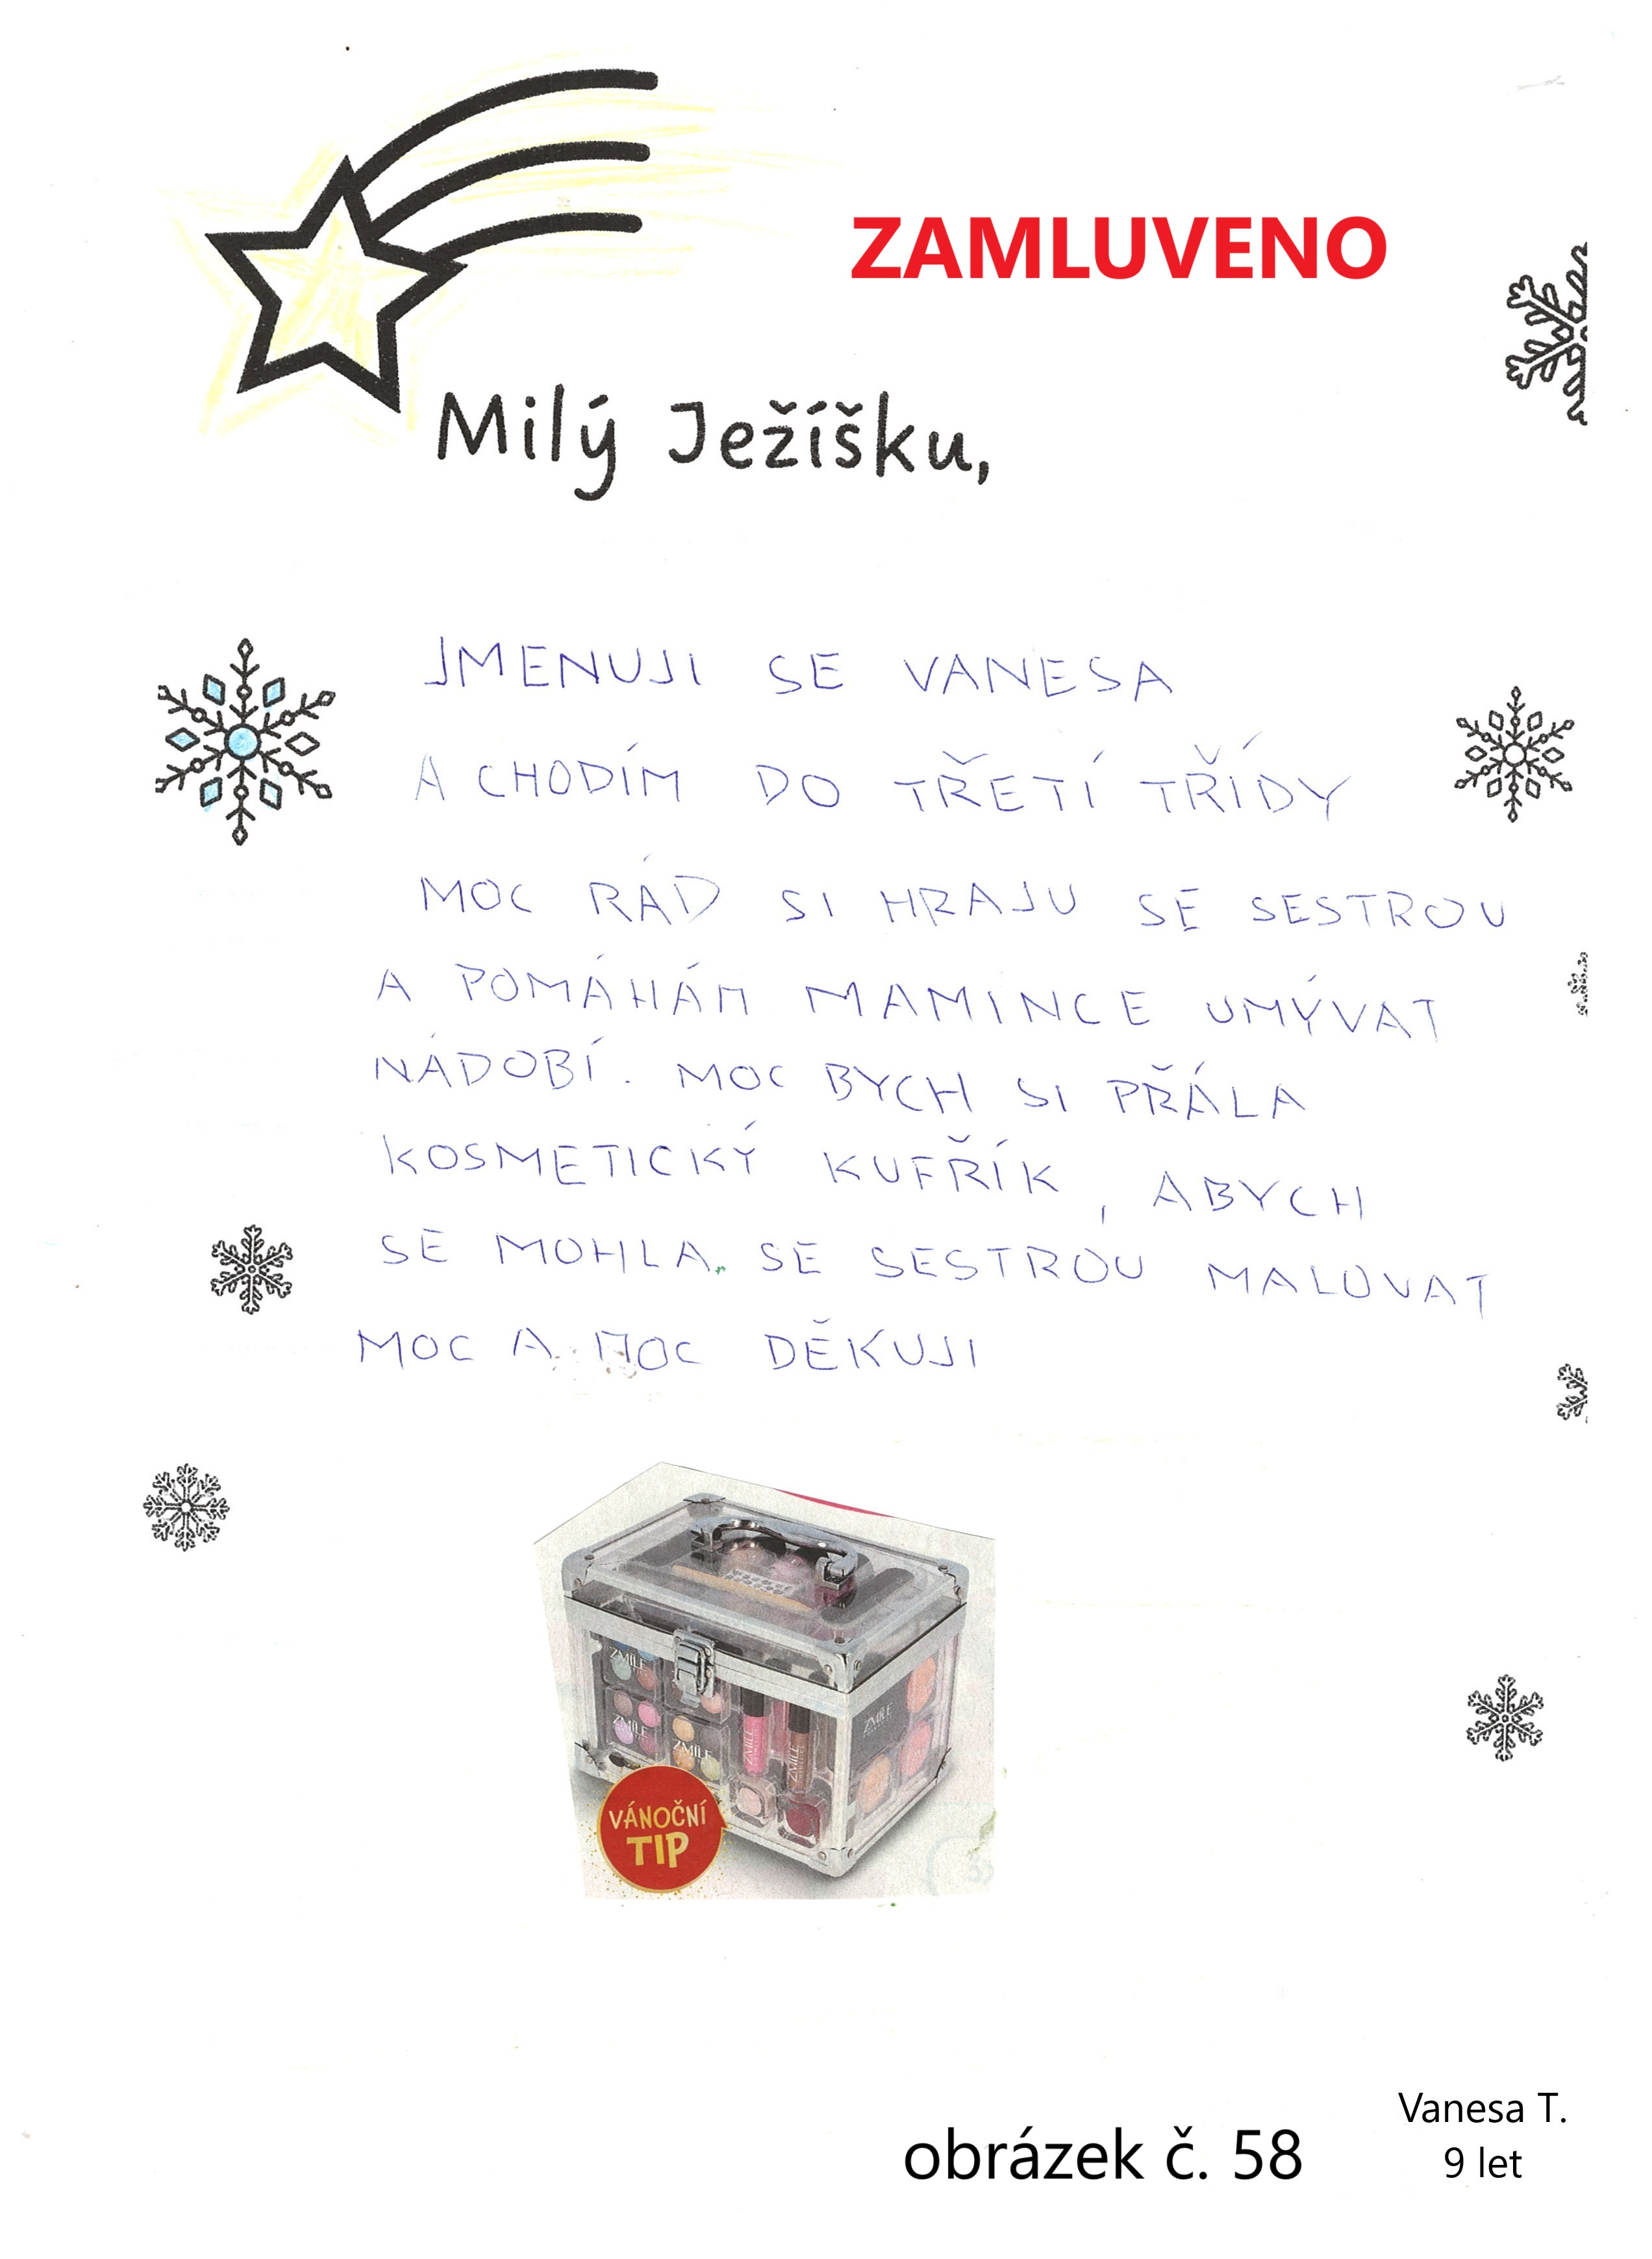 ZAMLUVENO
Milý Ježíšku,
JMENUJI SE VANESA
A CHODÍM DO TŘETÍ TŘÍDY
MOC RÁD SI HRAJU SE SESTROU
A POMÁHÁM MAMINCE UMÝVAT
NÁDOBÍ. MOC BYCH SI PŘÁLA
KOSMETICKÝ KUFŘÍK, ABYCH
SE MOHLA. SE SESTROU MALOVAT
MOC A MOC DĚKUJI
ZMILE
ZMILE
ZMILE
ZMILE
ZMILE
ZMILE
VÁNOČNÍ
TIP
Vanesa T.
obrázek č. 58
9 let